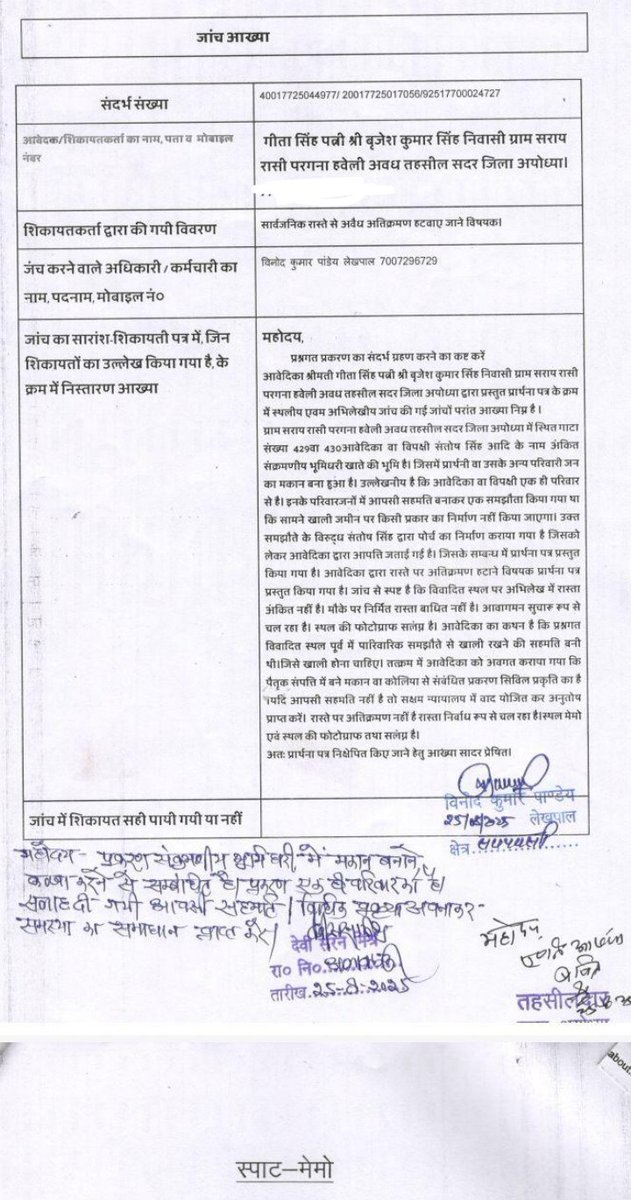 जांच आख्या
संदर्भ संख्या
40017725044977/ 20017725017056/92517700024727
आवेदक/शिकायतकर्ता का नाम, पता व मोबाइल
नंबर
गीता सिंह पत्नी श्री बृजेश कुमार सिंह निवासी ग्राम सराय
रासी परगना हवेली अवध तहसील सदर जिला अयोध्या।
शिकायतकर्ता द्वारा की गयी विवरण
सार्वजनिक रास्ते से अवैध अतिक्रमण हटवाए जाने विषयक।
जंच करने वाले अधिकारी / कर्मचारी का
नाम, पदनाम, मोबाइल नं०
विनोद कुमार पांडेय लेखपाल 7007296729
जांच का सारांश-शिकायती पत्र में, जिन
शिकायतों का उल्लेख किया गया है, के
क्रम में निस्तारण आख्या
महोदय,
प्रश्नगत प्रकरण का संदर्भ ग्रहण करने का कष्ट करें
आवेदिका श्रीमती गीता सिंह पत्नी श्री बृजेश कुमार सिंह निवासी ग्राम सराय रासी
परगना हवेली अवध तहसील सदर जिला अयोध्या द्वारा प्रस्तुत प्रार्थना पत्र के क्रम
में स्थलीय एवम अभिलेखीय जांच की गई जांचों परांत आख्या निम्न है ।
ग्राम सराय रासी परगना हवेली अवध तहसील सदर जिला अयोध्या में स्थित गाटा
संख्या 429वा 430आवेदिका वा विपक्षी संतोष सिंह आदि के नाम अंकित
संक्रमणीय भूमिधरी खाते की भूमि है। जिसमें प्रार्थनी वा उसके अन्य परिवारी जन
का मकान बना हुआ है। उल्लेखनीय है कि आवेदिका वा विपक्षी एक ही परिवार
से है। इनके परिवारजनों में आपसी सहमति बनाकर एक समझौता किया गया था
कि सामने खाली जमीन पर किसी प्रकार का निर्माण नहीं किया जाएगा। उक्त
समझौते के विरुद्ध संतोष सिंह द्वारा पोर्च का निर्माण कराया गया है जिसको
लेकर आवेदिका द्वारा आपत्ति जताई गई है। जिसके सम्बन्ध में प्रार्थना पत्र प्रस्तुत
किया गया है। आवेदिका द्वारा रास्ते पर अतिक्रमण हटाने विषयक प्रार्थना पत्र
प्रस्तुत किया गया है। जांच से स्पष्ट है कि विवादित स्थल पर अभिलेख में रास्ता
अंकित नहीं है। मौके पर निर्मित रास्ता बाधित नहीं है। आवागमन सुचारू रूप से
चल रहा है। स्थल की फोटोग्राफ सलंग्न है। आवेदिका का कथन है कि प्रश्नगत
विवादित स्थल पूर्व में पारिवारिक समझौते से खाली रखने की सहमति बनी
थी।जिसे खाली होना चाहिए। तत्क्रम में आवेदिका को अवगत कराया गया कि
पैतृक संपत्ति में बने मकान वा कोलिया से संबंधित प्रकरण सिविल प्रकृति का है
।यदि आपसी सहमति नहीं है तो सक्षम न्यायालय में वाद योजित कर अनुतोष
प्राप्त करें। रास्ते पर अतिक्रमण नहीं है रास्ता निर्वाध रूप से चल रहा है।स्थल मेमो
एवं स्थल की फोटोग्राफ तथा सलंग्न है।
अतः प्रार्थना पत्र निक्षेपित किए जाने हेतु आख्या सादर प्रेषित।
विनोद कुमार पाण्डेय
लेखपाल
क्षेत्र
जांच में शिकायत सही पायी गयी या नहीं
महोदय- प्रकरण संक्रमणीय भूमिधरी में मकान बनाने
कब्जा करने से सम्बंधित है। प्रकरण एक ही परिवार का है।
सलाह दी गयी आपसी सहमति / विधिक
समस्या का समाधान प्राप्त करें।
देवी सरन मिश्र
रा० नि०
तारीख 25-8-2025
महोदय,
तहसीलदार
about:
स्पाट–मेमो